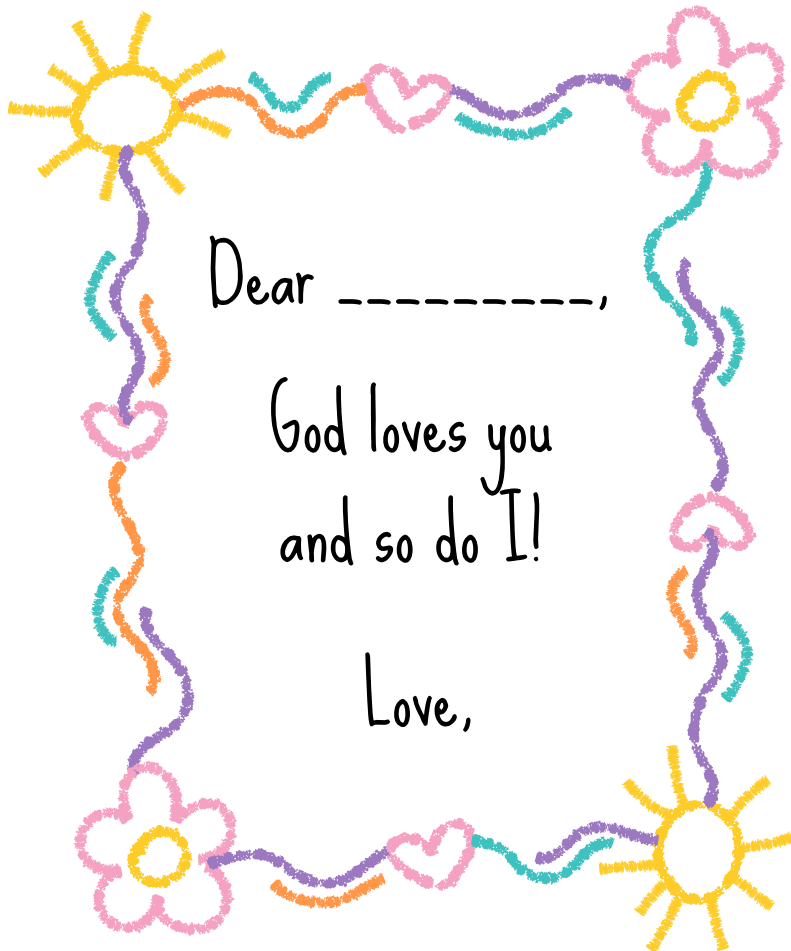 Dear _________,
God loves you
and so do I!
Love,